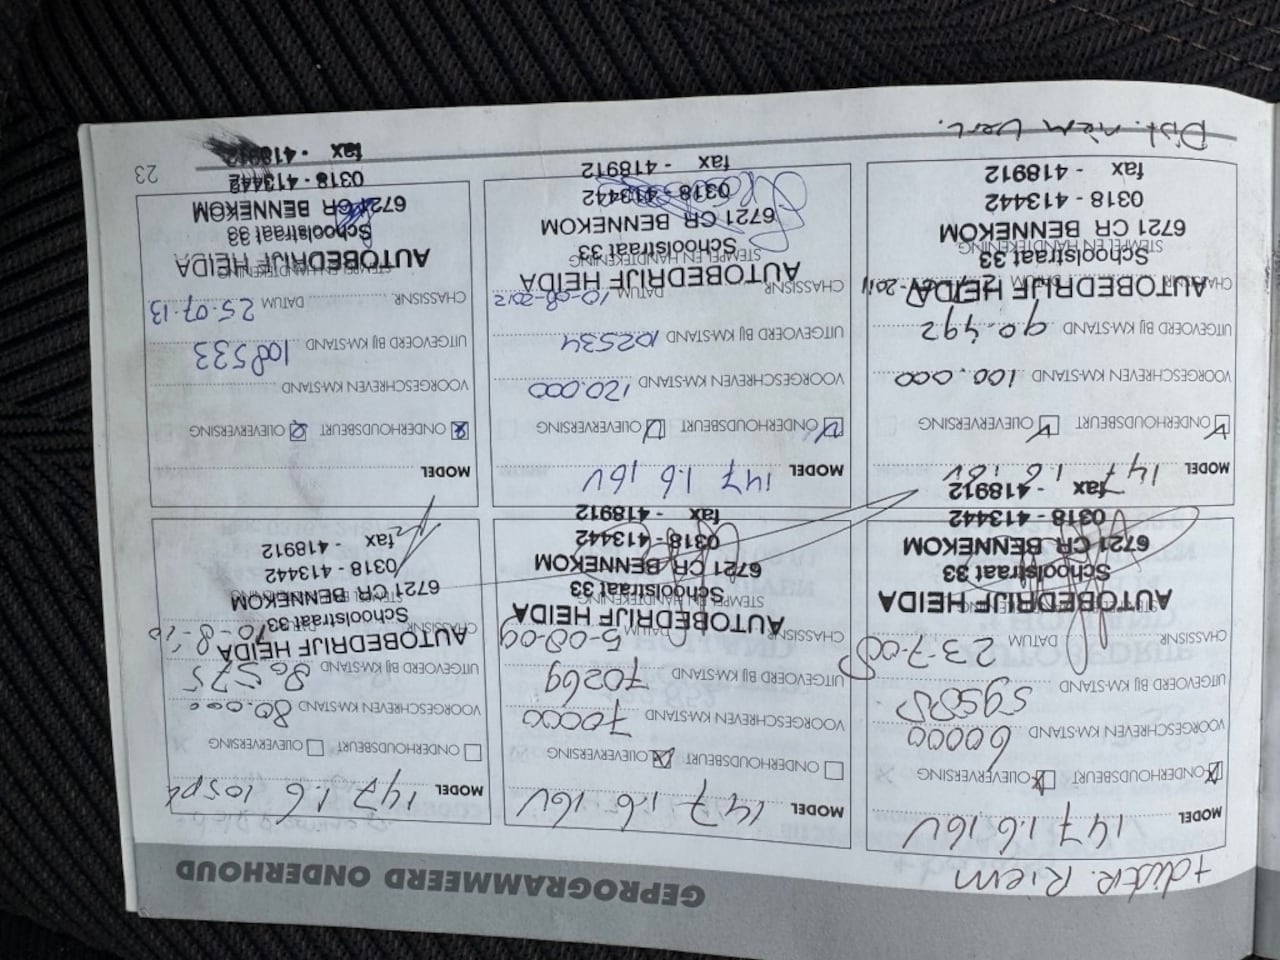 GEPROGRAMMEERD ONDERHOUD
+ distr. Riem
MODEL 147 1.6 16V
ONDERHOUDSBEURT OLIEVERVERSING
VOORGESCHREVEN KM-STAND 60000
UITGEVOERD BIJ KM-STAND 59585
CHASSISNR. DATUM 23-7-08
STEMPEL EN HANDTEKENING
AUTOBEDRIJF HEIDA
Schoolstraat 33
6721 CR BENNEKOM
0318 - 413442
fax - 418912
MODEL 147 1.6 16V
ONDERHOUDSBEURT OLIEVERVERSING
VOORGESCHREVEN KM-STAND 70000
UITGEVOERD BIJ KM-STAND 70269
CHASSISNR. DATUM 5-08-09
STEMPEL EN HANDTEKENING
AUTOBEDRIJF HEIDA
Schoolstraat 33
6721 CR BENNEKOM
0318 - 413442
fax - 418912
MODEL 147 1.6 105pk
ONDERHOUDSBEURT OLIEVERVERSING
VOORGESCHREVEN KM-STAND 80.000
UITGEVOERD BIJ KM-STAND 80575
CHASSISNR. 10-8-10
STEMPEL EN HANDTEKENING
AUTOBEDRIJF HEIDA
Schoolstraat 33
6721 CR BENNEKOM
0318 - 413442
fax - 418912
MODEL 147 1.6 16V
ONDERHOUDSBEURT OLIEVERVERSING
VOORGESCHREVEN KM-STAND 100.000
UITGEVOERD BIJ KM-STAND 90.492
CHASSISNR. DATUM 2011
STEMPEL EN HANDTEKENING
AUTOBEDRIJF HEIDA
Schoolstraat 33
6721 CR BENNEKOM
0318 - 413442
fax - 418912
MODEL 147 1.6 16V
ONDERHOUDSBEURT OLIEVERVERSING
VOORGESCHREVEN KM-STAND 120.000
UITGEVOERD BIJ KM-STAND 102534
CHASSISNR. DATUM 10-08-2012
STEMPEL EN HANDTEKENING
AUTOBEDRIJF HEIDA
Schoolstraat 33
6721 CR BENNEKOM
0318 - 413442
fax - 418912
MODEL
ONDERHOUDSBEURT OLIEVERVERSING
VOORGESCHREVEN KM-STAND
UITGEVOERD BIJ KM-STAND 108533
CHASSISNR. DATUM 25-07-13
STEMPEL EN HANDTEKENING
AUTOBEDRIJF HEIDA
Schoolstraat 33
6721 CR BENNEKOM
0318 - 413442
fax - 418912
Dist. riem verv.
23